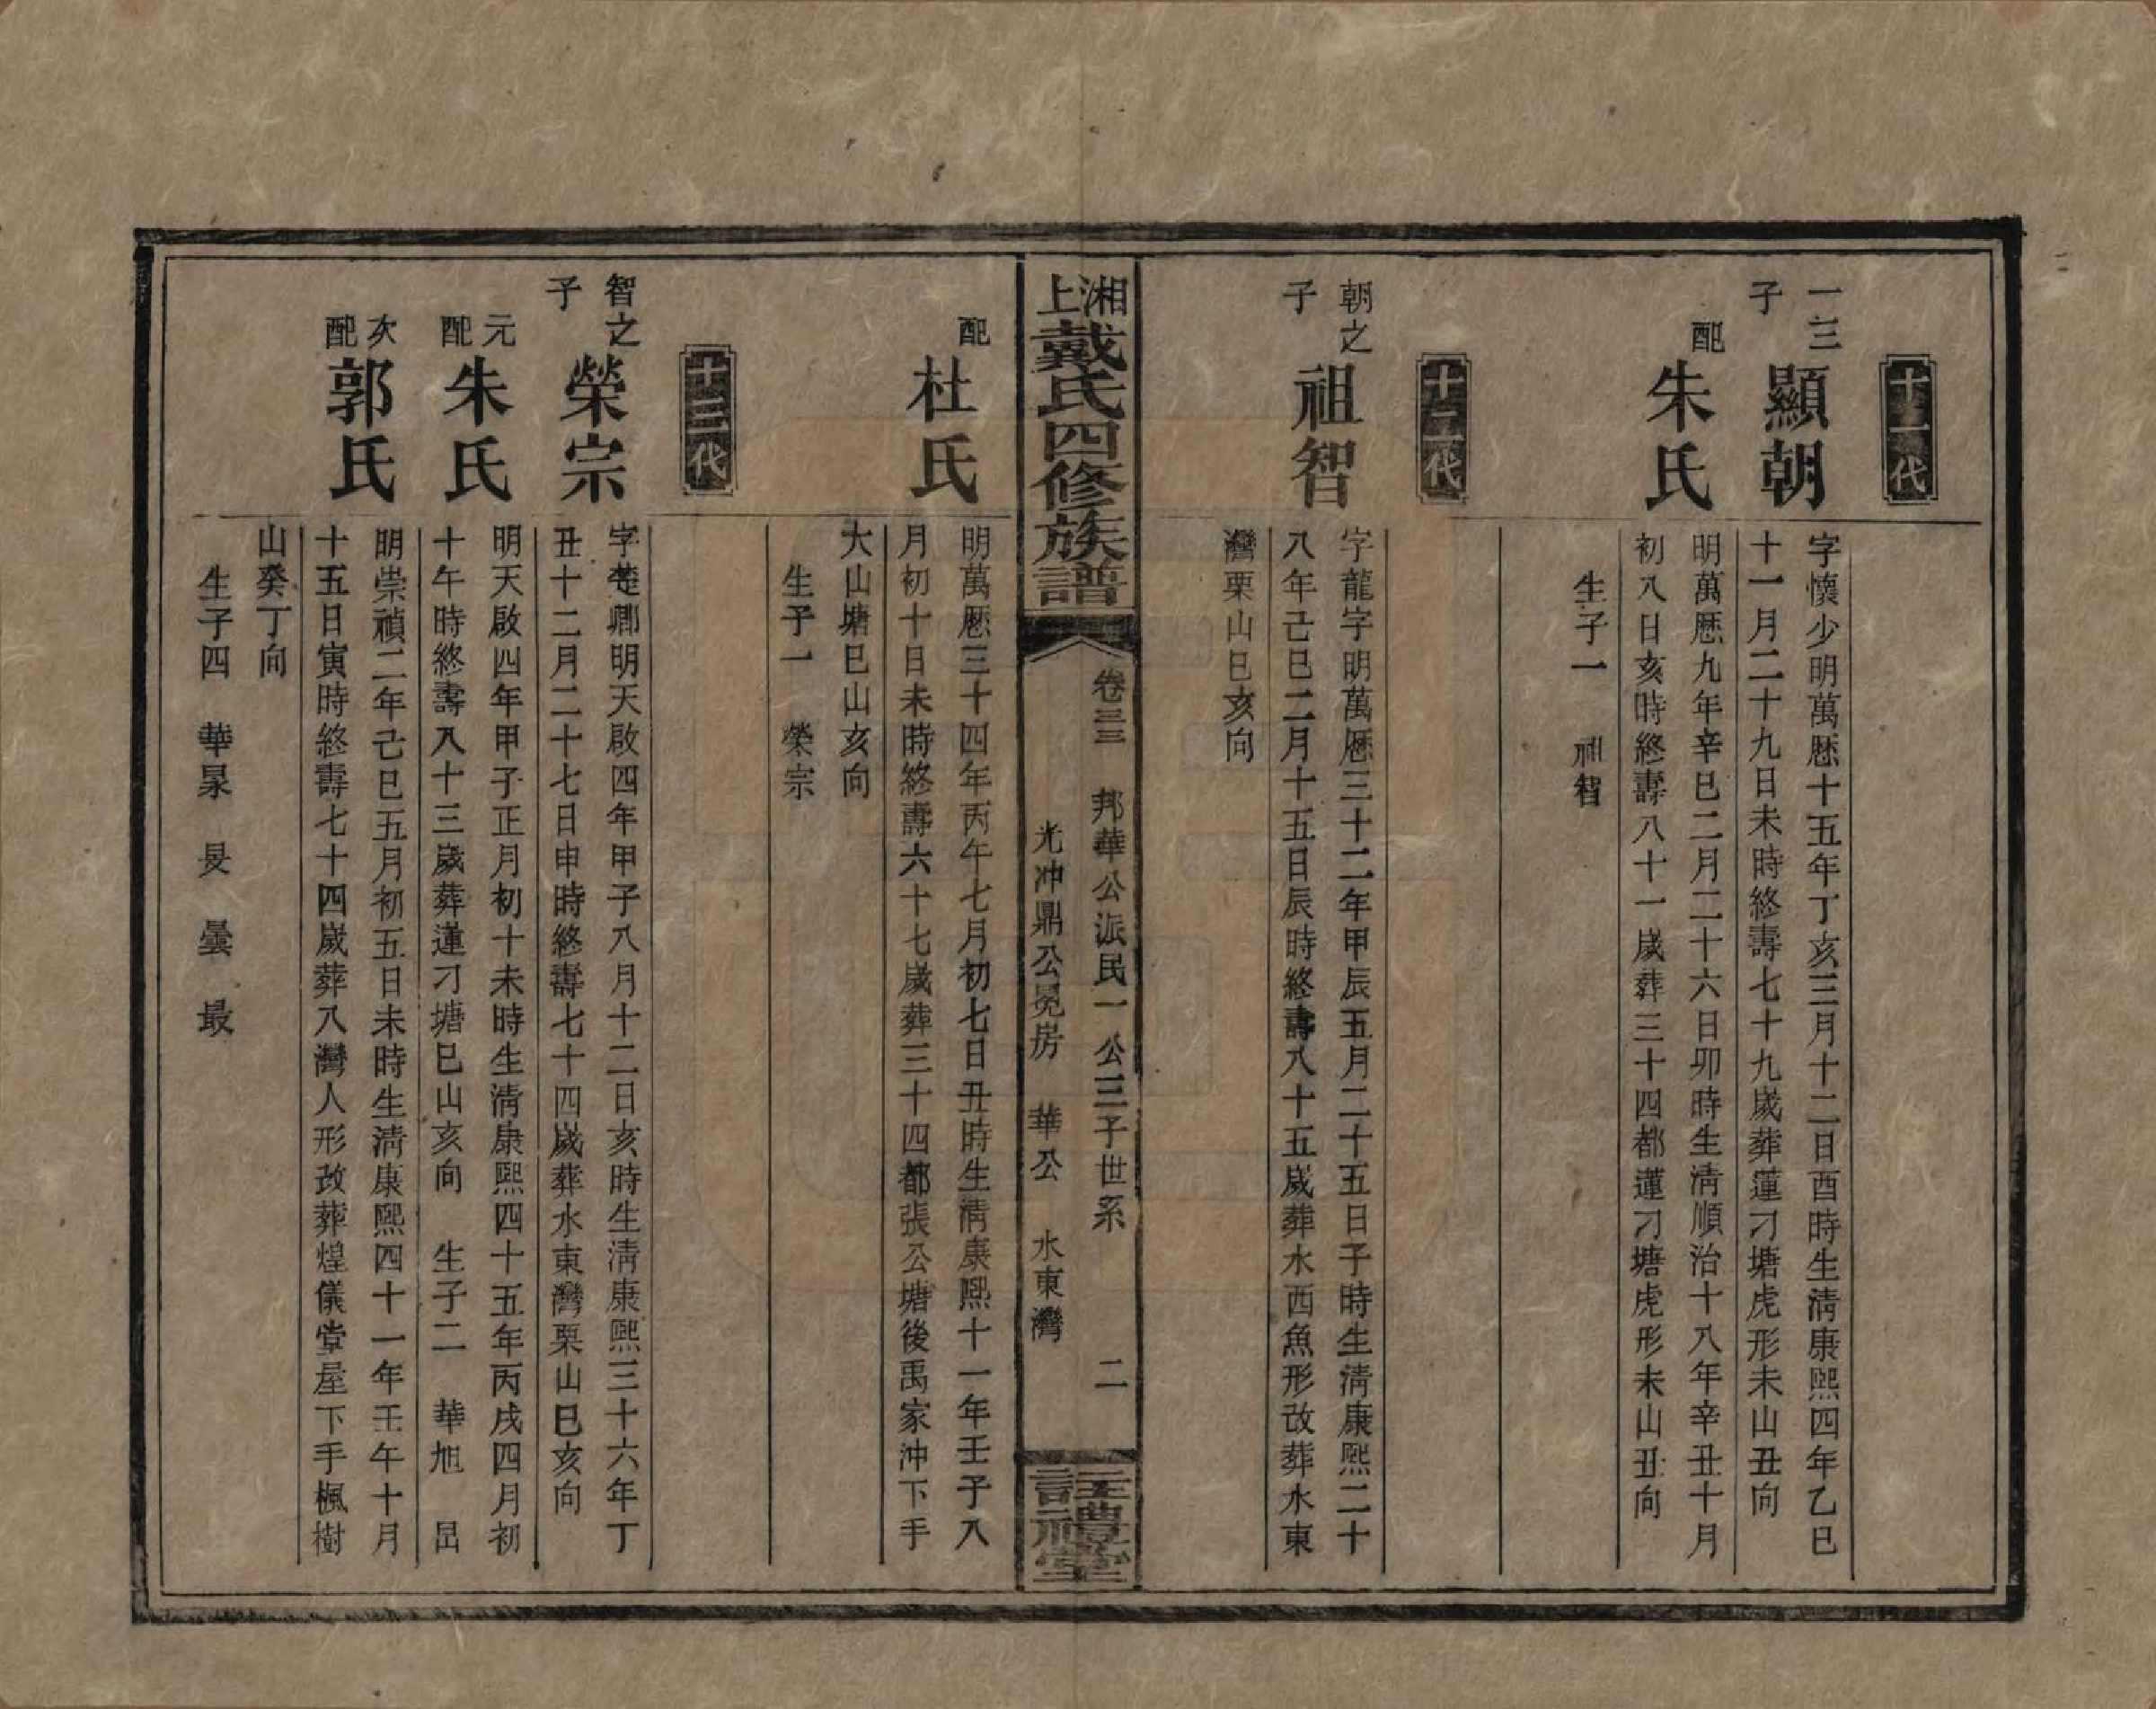 十一代
一三子
顯朝
字懷少明萬厯十五年丁亥三月十二日酉時生清康熙四年乙巳
十一月二十九日未時終壽七十九歲葬蓮刁塘虎形未山丑向
配
朱氏
明萬厯九年辛巳二月二十六日卯時生清順治十八年辛丑十月
初八日亥時終壽八十一歲葬三十四都蓮刁塘虎形未山丑向
生子一 祖智
十二代
朝之子
祖智
字龍字明萬厯三十二年甲辰五月二十五日子時生清康熙二十
八年己巳二月十五日辰時終壽八十五歲葬水西魚形改葬水東
灣栗山巳亥向
湘上戴氏四修族譜
卷三三 邦華公派民一公三子世系 二
光冲鼎公冕房 華公 水東灣
註禮堂
配
杜氏
明萬厯三十四年丙午七月初七日丑時生清康熙十一年壬子八
月初十日未時終壽六十七歲葬三十四都張公塘後禹家冲下手
大山塘巳山亥向
生子一 榮宗
十三代
智之子
榮宗
字楚卿明天啟四年甲子八月十二日亥時生清康熙三十六年丁
丑十二月二十七日申時終壽七十四歲葬水東灣栗山巳亥向
元配
朱氏
明天啟四年甲子正月初十未時生清康熙四十五年丙戌四月初
十午時終壽八十三歲葬蓮刁塘巳山亥向 生子二 華旭 昂
次配
郭氏
明崇禎二年己巳五月初五日未時生清康熙四十一年壬午十月
十五日寅時終壽七十四歲葬八灣人形改葬煌儀堂屋下手楓樹
山癸丁向
生子四 華㫤 旻 曇 最